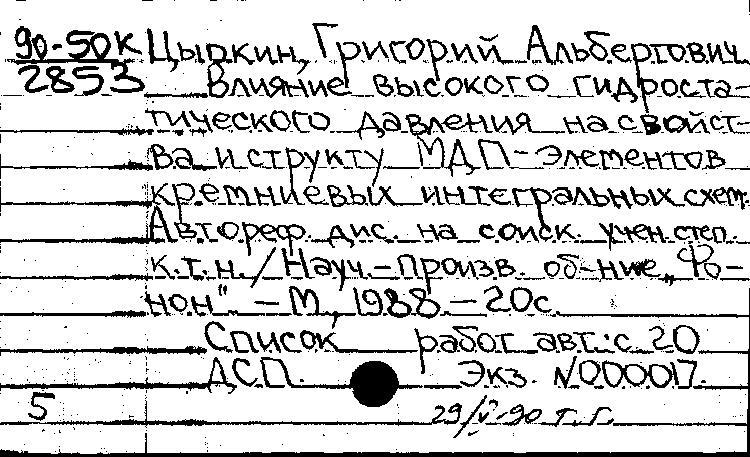 90-50к Цыркин, Григорий Альбертович
2853 Влияние высокого гидроста-
тического давления на свойст-
ва и структу МДП-элементов
кремниевых интегральных схем.
Автореф. дис. на соиск. учен. степ.
к.т.н. / Науч.-произв. об-ние „Фо-
нон". – М., 1988. – 20с.
Список работ авт.: с 20
ДСП. Экз. N000017.
5 29/V-90 т. г.